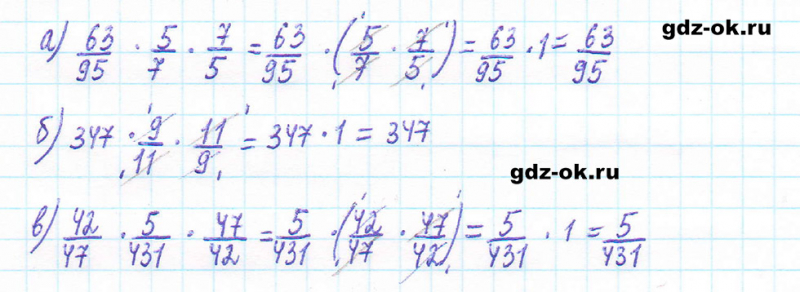 gdz-ok.ru
а) 63/95 · 5/7 · 7/5 = 63/95 · (5/7 · 7/5) = 63/95 · 1 = 63/95
б) 347 · 9/11 · 11/9 = 347 · 1 = 347
gdz-ok.ru
в) 42/47 · 5/431 · 47/42 = 5/431 · (42/47 · 47/42) = 5/431 · 1 = 5/431